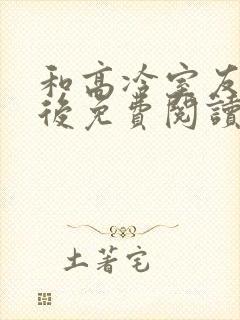 和高冷室友
後免費閱讀
土著宅